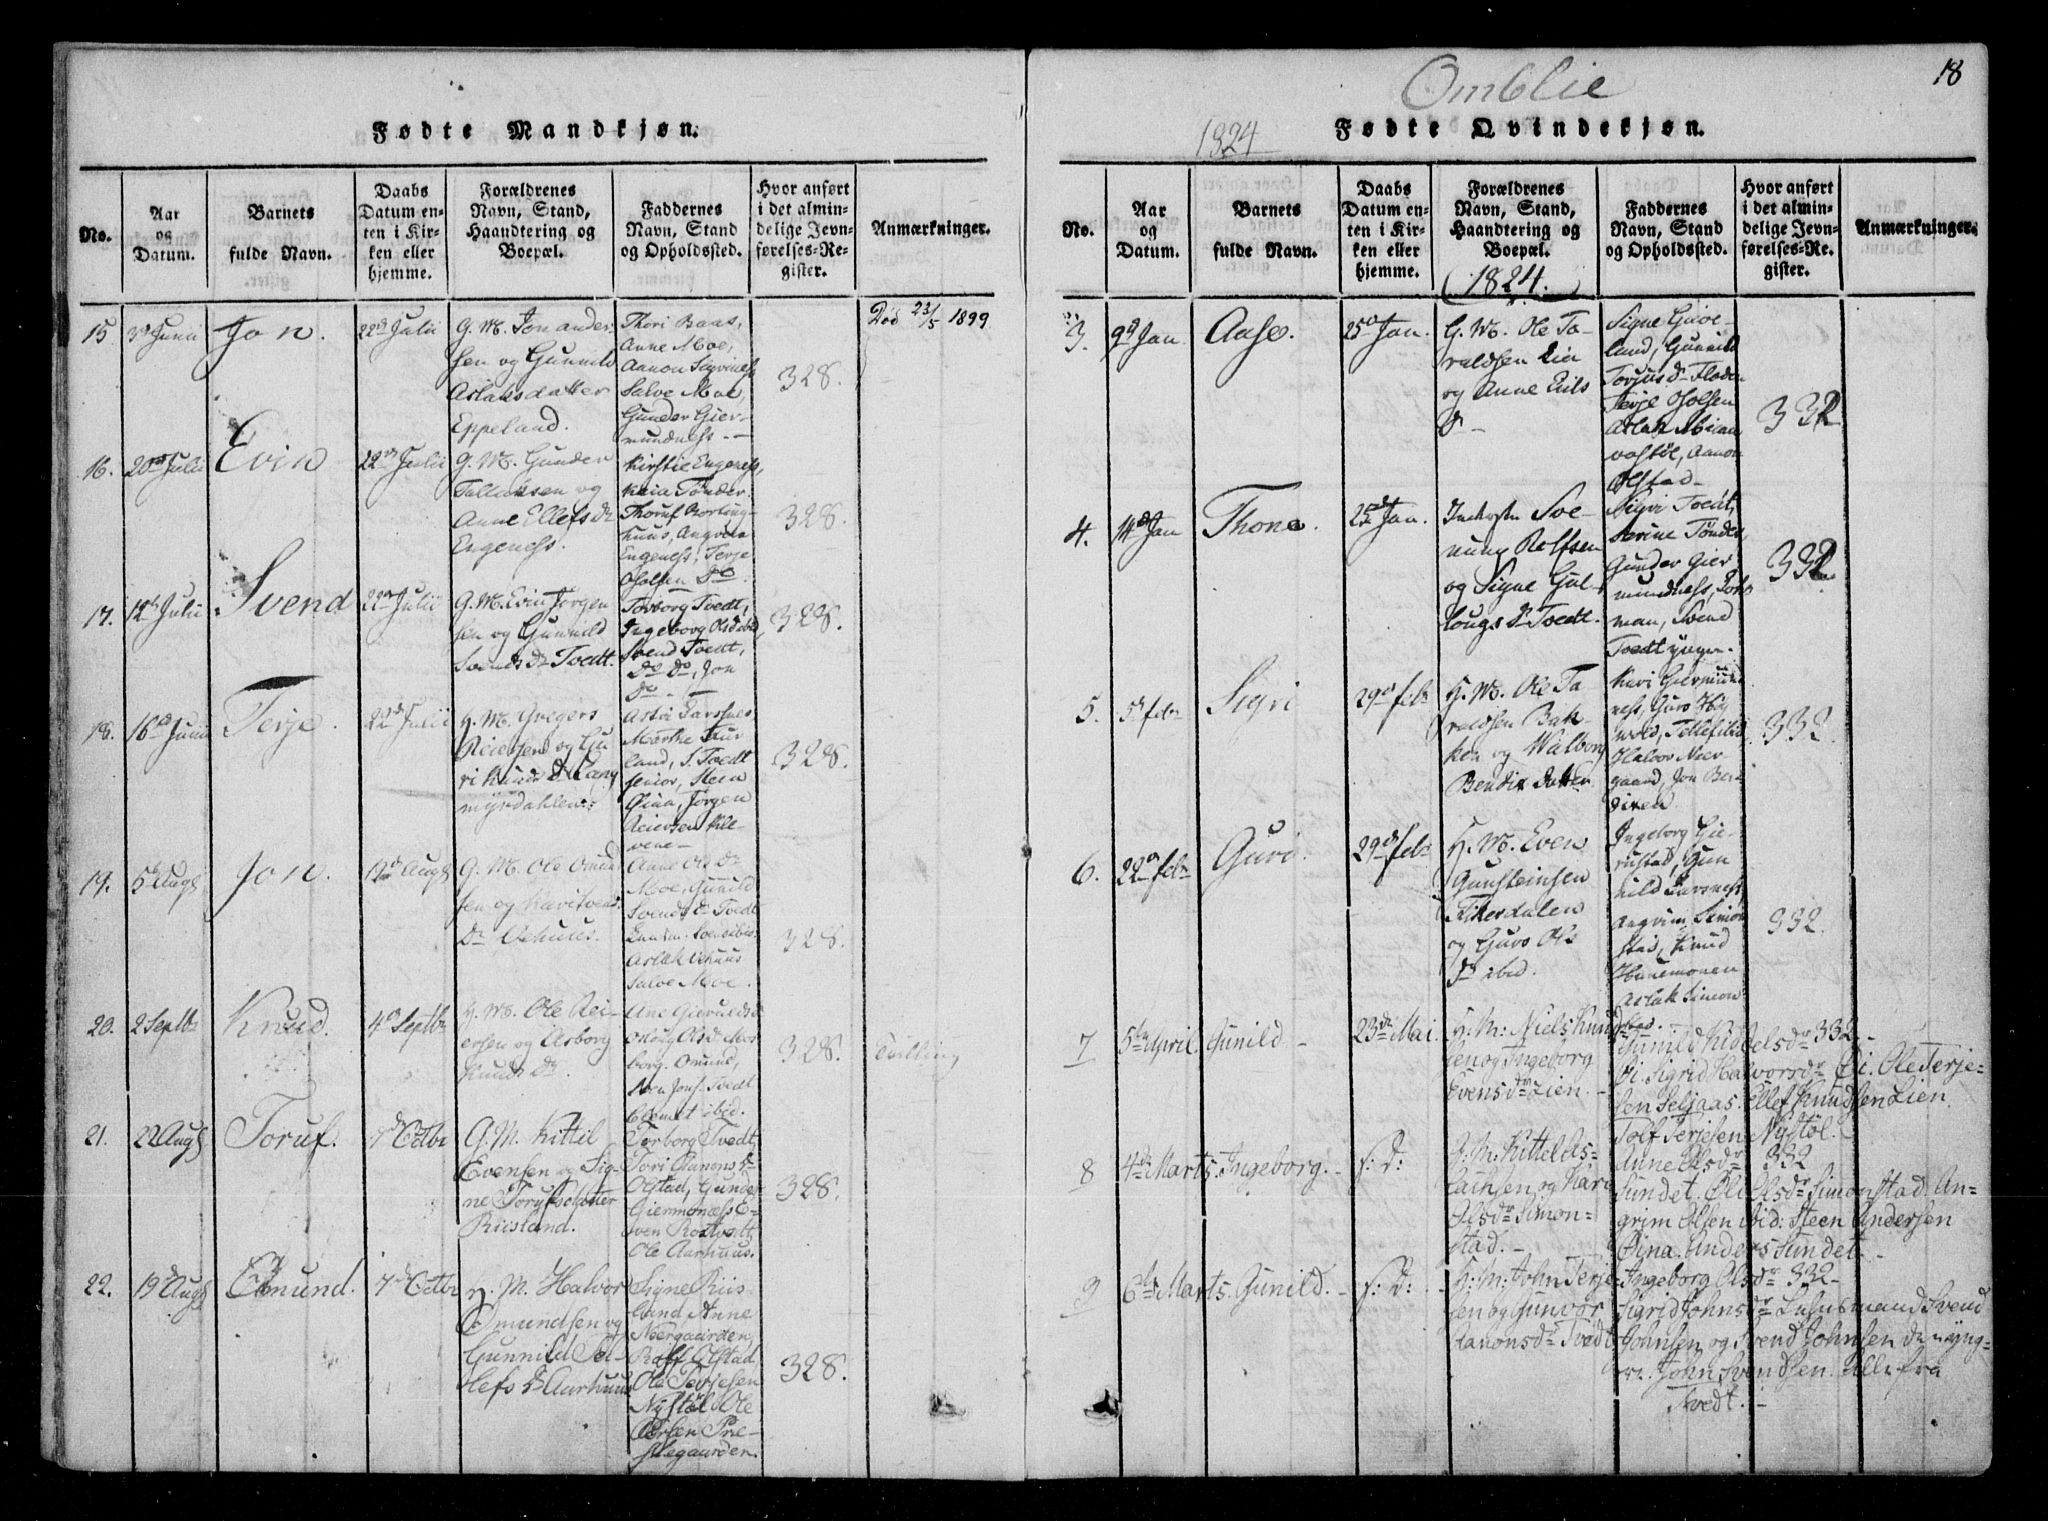 Fødte Mandkjøn.
No.
Aar
og
Datum.
Barnets
fulde Navn.
Daabs
Datum en-
ten i Kir-
ken eller
hjemme.
Forældrenes
Navn, Stand,
Haandtering og
Boepæl.
Faddernes
Navn, Stand
og Opholdssted.
Hvor anført
i det almin-
delige Jevn-
førelses-Re-
gister.
Anmærkninger.
15
3d Junii
Jon.
22d Julii
G. M. Jon Ander-
sen og Gunnild
Aslaksdatter
Eppeland.
Thori Baas,
Anne Moe,
Aanon
Salve Moe,
Gunder Gier-
mundness --
328.
Død 23/5 1899
16.
20d Julii
Evin
22d Julii
G. M. Gunder
Tallaksen og
Anne Ellefs Dr
Engeness.
Kirstie Engeness,
Tønder
Thoruf
huus, Angrim
Engeness, Terje
Oholsen Do.
328.
17.
12d Julii
Svend
22d Julii
G. M. Evin Jørgen
sen og Gunnild
Svends Dr Tvedt.
Torborg Tvedt,
Ingeborg
Svend Tvedt,
Do Do, Jon
Do - -
328.
18.
16d Junii
Terje.
22d Julii
H. M. Gregers
Reiersen og Gu
ri Knuds Dr Lang
myrdahlen.
Marthe
land, S. Tvedt
senior, Stein
Jørgen
Reiersen
vene-
328.
19.
5d Augs
Jon.
19d Augs
G. M. Ole Omund
sen og Kari
Dr Vehuus.
Anne Ols Dr
Moe, Gunild
Svends Dr Tvedt
Aslak Vehuus
Salve Moe.
328.
20.
2 Septbr
Knud.
4d Septbr
H. M. Ole Rei-
ersen og Asborg
Knuds Dr.
borg. Omund,
Tvedt
ibid.
328.
Tvilling
21.
22 Augs
Toruf.
7d Octbr
G. M. Kittil
Evensen og Sig-
ne Torufsdatter
Riisland.
Torborg Tvedt,
Tori Aanons Dr
Olstad, Gunder
Giermoness E-
ven
Ole Aarhuus.
328.
22.
19d Augs
Omund.
7d Octbr
H. M. Halvor
Omundsen og
Gunnild Tel-
lefs Dr Aarhuus
Signe Riis-
land, Anne
Neergaarden,
Rolf Olstad,
Ole Terjesen
Nystøl, Ole
Pre-
stegaarden.
328.
Omblie
18
1824
Fødte Qvindekjøn.
No.
Aar
og
Datum.
Barnets
fulde Navn.
Daabs
Datum en-
ten i Kir-
ken eller
hjemme.
Forældrenes
Navn, Stand,
Haandtering og
Boepæl.
Faddernes
Navn, Stand
og Opholdssted.
Hvor anført
i det almin-
delige Jevn-
førelses-Re-
gister.
Anmærkninger.
1824.
3.
9d Jan
Aase.
25d Jan.
G. M. Ole Ta-
raldsen Lia
og Anne Eriks
Dr -
Signe
land, Gunnild
Torjus Dr
Terje Oholsen
Aslak
Aanon
Olstad-
332
4.
14d Jan
Thone.
25d Jan.
Sve-
nung Rolfsen
og Signe Gul-
lougs Dr Tvedt.
Sigri Tvedt,
Serine Tønder,
Gunder Gier
mundness,
man, Svend
Tvedt yngr.
332.
5.
5d febr
Sigri
29d febr
H. M. Ole Ta
raldsen Bak-
ken og Walborg
Bendix datter
Kari Giermund
ness, Guro
wold, Tellef ibid
Halvor Neer
gaard, Jon Ben-
dixen
332.
6.
22d febr
Guri
29d febr
H. M. Even
Gunsteinsen
Fikerdalen
og Guro Ols
Dr ibid.
Ingeborg Gie-
rustad, Gun
nild
Angrim Simon
stad, Knud
Aslak Simon
stad.
332.
7
5te April.
Gunild -
23de Mai.
H: M: Niels Knud
sen og Ingeborg
Evensdr Lien. -
Gunild Kiddelsdr 332 -
Sigrid Halvorsdr Ole Terje-
sen Seljaas. Ellef Knudsen Lien
Tolf Terjesen Nystøl. -
8
4de Marts.
Ingeborg. -
s: D:
H: M: Kittel As-
lachsen og Kari
Olsdr Simon-
stad. -
Anne Olsdr 332
Sundet. Olsdr Simonstad. An-
grim Olsen ibid: Steen Andersen
Anders Sundet -
9
6te Marts.
Gunild. -
s: D: -
H: M: John Terje
sen og Gunvor
Aanonsdr Tvedt
Ingeborg Olsdr 332 -
Sigrid Johnsdr Lehnsmand Svend
Johnsen og Svend Johnsen den yng-
re. John Svendsen. Alle fra
Tvedt. -